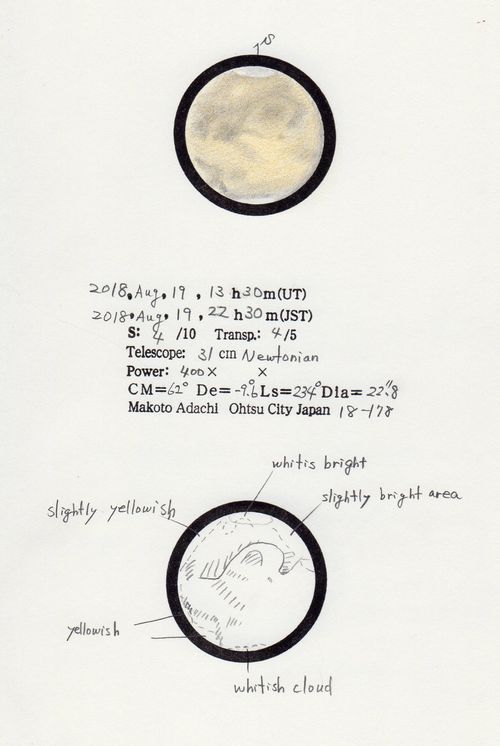 2018, Aug, 19, 13 h30m(UT)
2018, Aug, 19, 22 h30m(JST)
S: 4 /10 Transp.: 4/5
Telescope: 31 cm Newtonian
Power: 400× ×
CM=62° De=-9.°6 Ls=234° Dia=22.″8
Makoto Adachi Ohtsu City Japan 18-178
whitis bright
slightly yellowish
slightly bright area
yellowish
whitish cloud